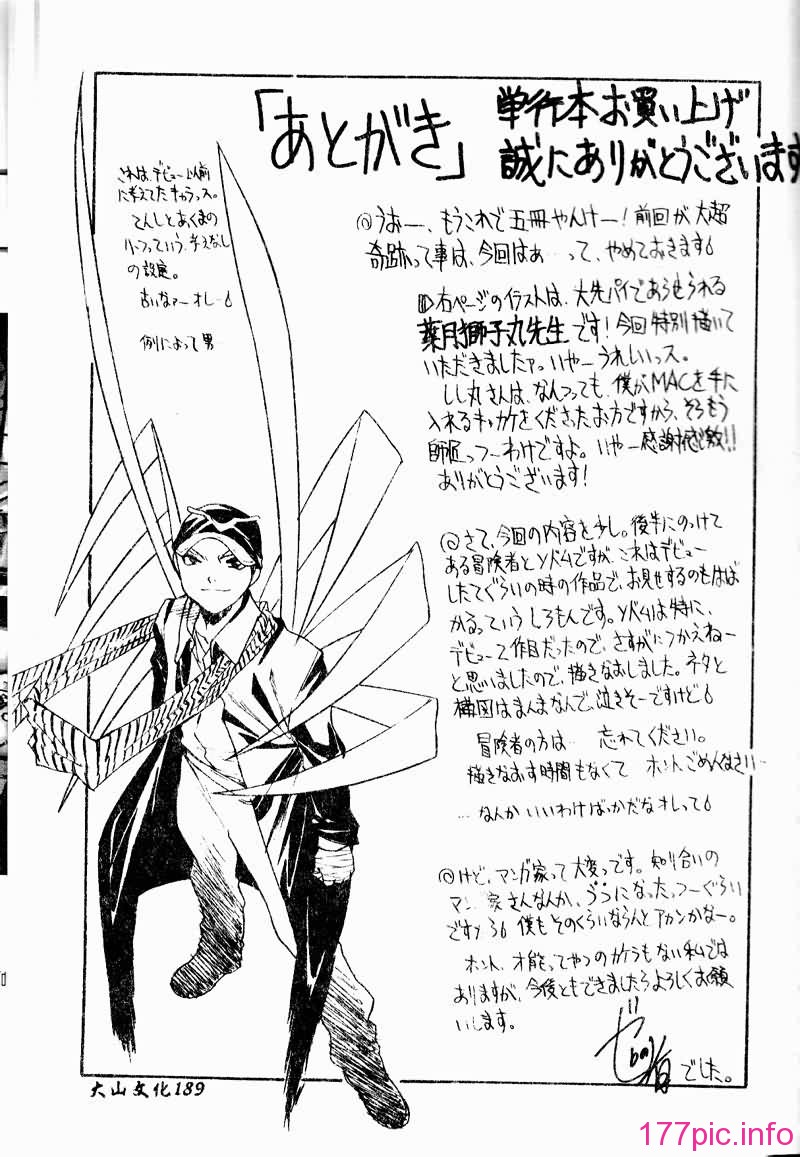 「あとがき」
単行本お買い上げ
誠にありがとうございます
これは、デビュー以前
に考えてたキャラッス。
てんしとあくまの
ハーフっていう、考えなし
の設定。
古いなァーオレ…
例によって男
◎うおー、もうこれで五冊やんけー!前回が大超
奇跡って事は、今回はぁ…って、やめておきます
右ページのイラストは、大先パイであらせられる
薬月獅子丸先生です!今回特別描いて
いただきましたァ。いやーうれしいっス。
しし丸さんは、なんつっても、僕がMACを手に
入れるキッカケをくださったお方ですから、そらもう
師匠っつーわけですよ。いやー感謝感激!!
ありがとうございます!
◎さて、今回の内容を少し。後半にのっけて
ある冒険者とソバムですが、これはデビュー
したてぐらいの時の作品で、お見せするのもはば
かるっていうしろもんです。ソバムは特に、
デビュー2作目だったので、さすがにつかえねー
と思いましたので、描きなおしました。ネタと
構図はまんまなんで、泣きそーですけど
冒険者の方は… 忘れてください。
描きなおす時間もなくて ホントごめんなさい…
…なんかいいわけばっかだなオレって
◎けど、マンガ家って大変っです。知り合いの
マンガ家さんなんか、うつになったっつーぐらい
です 僕もそのくらいならんとアカンかなー。
ホント、才能ってやつのカケラもない私では
ありますが、今後ともできましたらよろしくお願
いします。
でした。
大山文化189
177pic.info